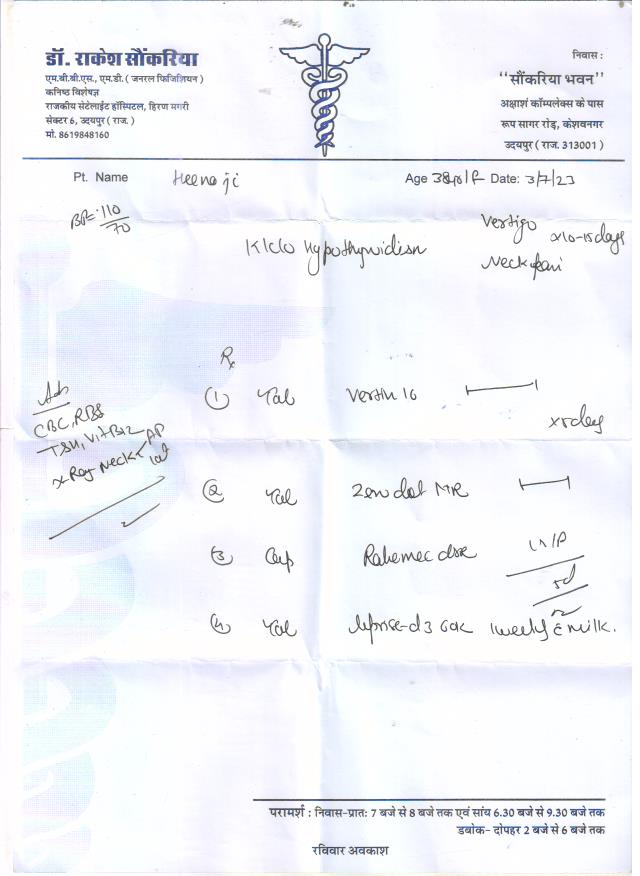 डॉ. राकेश सौंकरिया
एम.बी.बी.एस., एम.डी. ( जनरल फिजिशियन )
कनिष्ठ विशेषज्ञ
राजकीय सेटेलाईट हॉस्पिटल, हिरण मगरी
सेक्टर 6, उदयपुर ( राज. )
मो. 8619848160
निवास :
"सौंकरिया भवन"
अक्षांश कॉम्पलेक्स के पास
रूप सागर रोड़, केशवनगर
उदयपुर ( राज. 313001 )
Pt. Name Heena ji Age 38yr/F Date: 3/7/23
BP= 110/70
K/c/o Hypothyroidism
Vertigo x10-15days
Neck pain
Rx
Adv
CBC, RBS
TSH, Vit B12
X-Ray Neck AP lat
① Tab Vertin 16
x5days
② Tab MR
③ Cap
④ Tab -d3 60k 1 weekly c̄ milk.
परामर्श : निवास-प्रातः 7 बजे से 8 बजे तक एवं सांय 6.30 बजे से 9.30 बजे तक
डबोक- दोपहर 2 बजे से 6 बजे तक
रविवार अवकाश